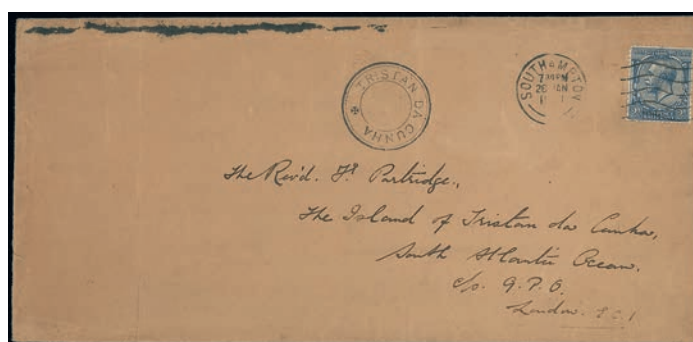 TRISTAN DA CUNHA
SOUTHAMPTON
PM
The Rev'd.
Partridge.,
The Island of Tristan da Cunha,
South Atlantic Ocean.
c/o. G.P.O.
London. E.C.1